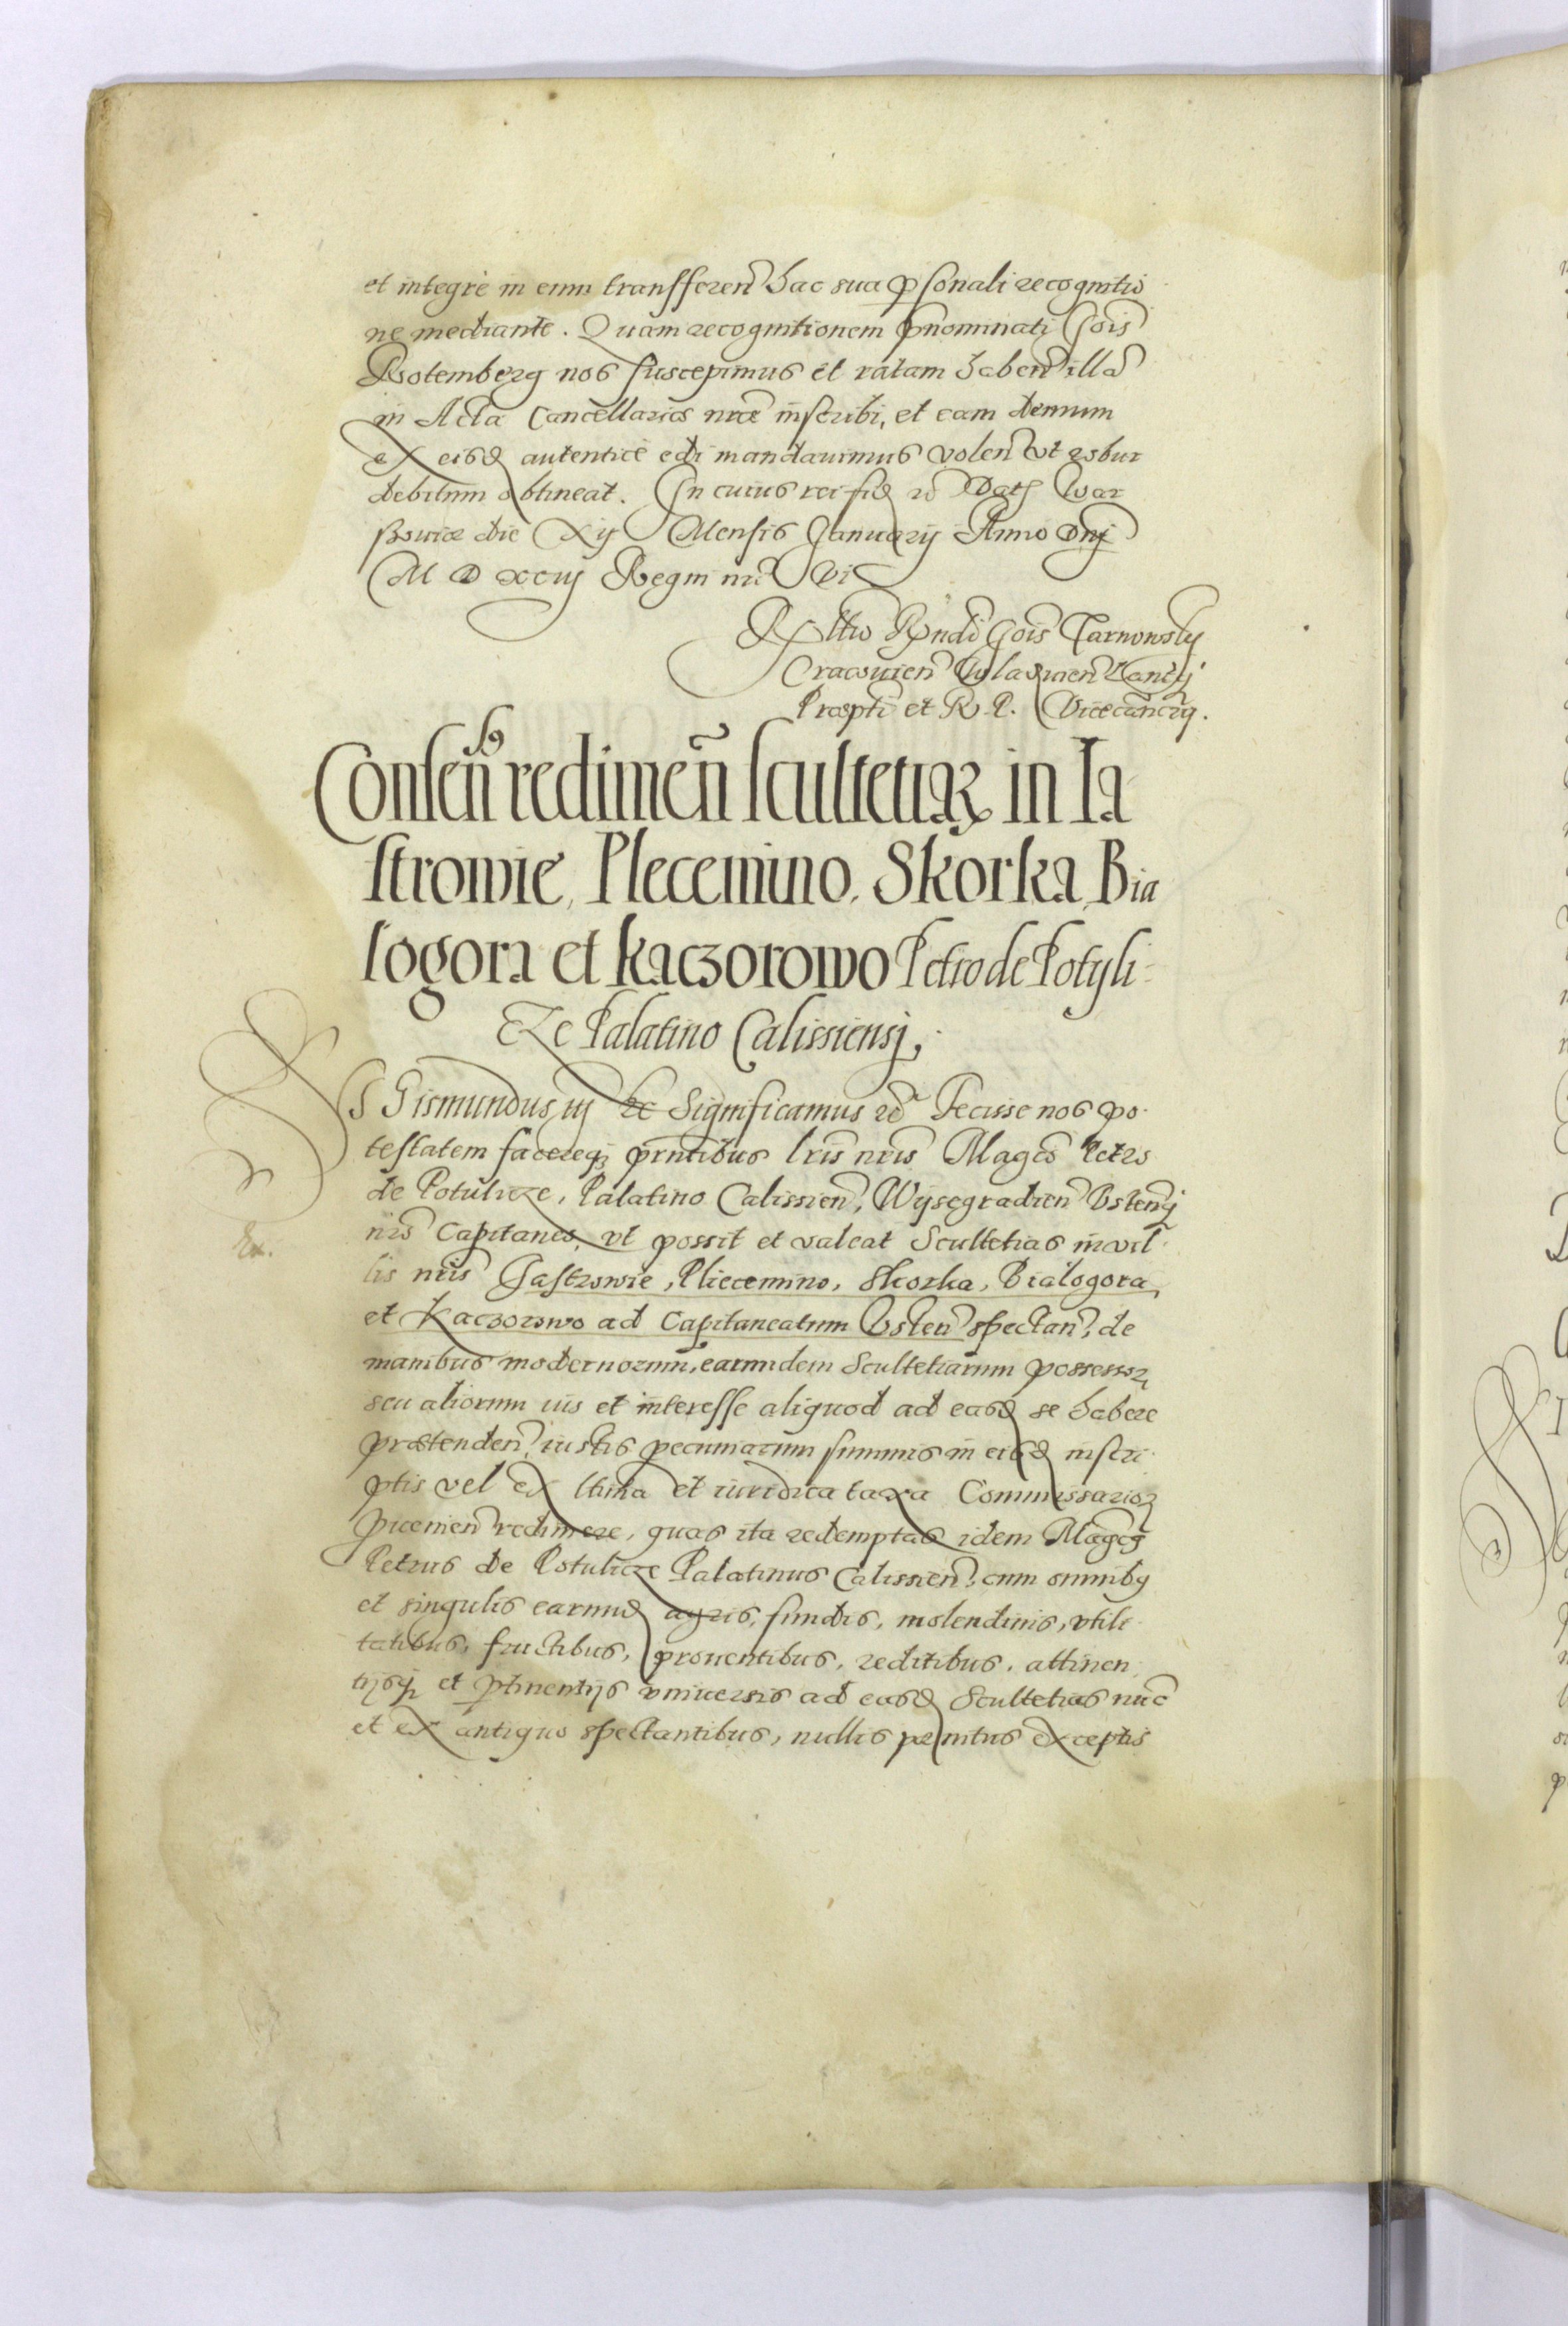 et integrè in eum transfferen̄ hac sua p̱sonali recognitio
ne mediante. Quam recognitionem p̄nominati Gn̄is
Rotemberg nos suscepimus et ratam haben̄ illā
in Acta Cancellariæ nr̄æ inscribi, et eam demum
ex eisd̄ autenticè edi mandauimus volen̄ vt robur
debitum obtineat. In cuius rei fid̄ rc̄ Dat̄ War
ssouiæ die Xij Mensis Januarij Anno Dnj̄
M D XCiij Regni nr̄i Vi
Ex Rltio Rndi Gn̄is Tarnowsky
Cracouien̄ Vladislauien̄ Lanciẏ
Præpti et R. P. Vicecancrÿ.
Consen̄s redimen̄ scultetiaꝝ in Ia
strowie, Plecemino, Skorka, Bia
logora et Kaczorowo Petro de Potyli
cze Palatino Calissiensj,
SIGismundus iij rc̄ Significamus rc̄ Fecisse nos po
testatem facereqꝫ prn̄tibus lr̄is nr̄is Mag̃co Petro
de Potulicze, Palatino Calissien̄, Wysegradien̄ Vstenj̄
nr̄o Capitaneo, vt possit et valeat Scultetias in vil
lis nr̄is Jastrowie, Pliecemino, Skorka, Bialogora,
et Kaczorowo ad Capitaneatum Vsten̄ spectan̄, de
manibus modernorum, earumdem Scultetiarum possessoꝝ
seu aliorum ius et interesse aliquod ad easd̄ se habere
prætenden̄, iustis pecuniarum summis in eisd̄ inscri
ptis vel ex lt̄ima et iuridica taxa Commissarioꝝ
p̱uenien̄ redimere, quas ita redemptas idem Mag̃cꝰ
Petrus de Potulicze Palatinus Calissien̄, cum omnibꝰ
et singulis earumd̄ agris, fundis, molendinis, vtili
tatibus, fructibus, prouentibus, reditibus, attinen
tijsqꝫ et p̱tinentijs vniuersis ad easd̄ Scultetias nūc
et ex antiquo spectantibus, nullis penitus exceptis